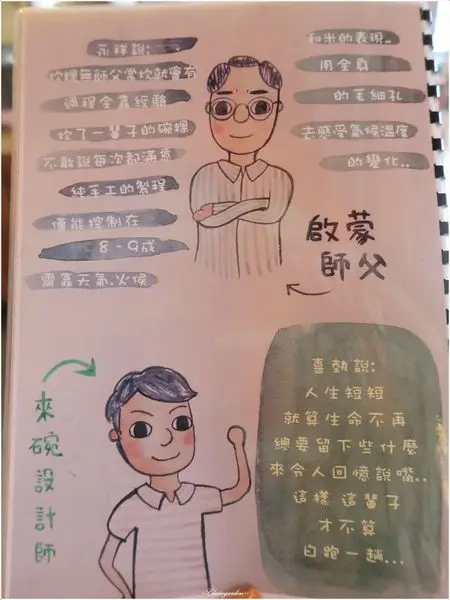 永祥說:
炊粿無師父常炊就會有
過程全靠經驗
炊了一輩子的碗粿
不敢說每次都滿意
純手工的製程
僅能控制在
8-9成
需靠天氣.火候
和米的表現..
用全身
的毛細孔
去感受氣候溫度
的變化..
啟蒙
師父
來碗設計師
喜勢說:
人生短短
就算生命不再
總要留下些什麼
來令人回憶說嘴..
這樣 這輩子
才不算
白跑一趟...